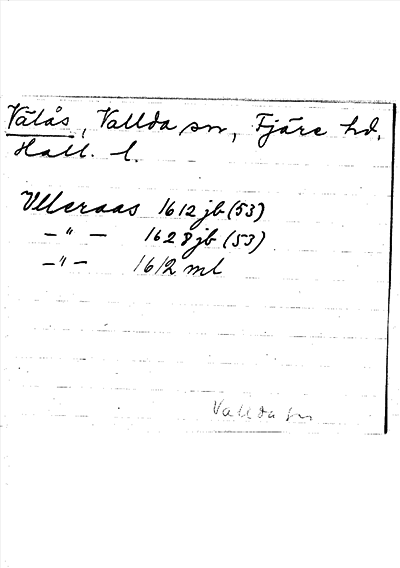 Välås, Vallda sn, Fjäre hd.
Hall. l.
Vlleraas 1612 jb (53)
–"– 1628 jb (53)
–"– 1612 ml
Vallda sn